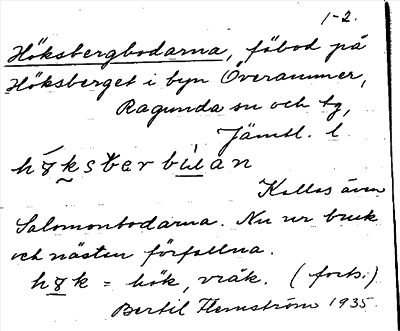 1-2.
Höksbergbodarna, fäbod på
Höksberget i byn Överammer,
Ragunda sn och tg,
Jämtl. l.
Kallas även
Salomonbodarna. Nu ur bruk
och nästan förfallna.
= hök, vråk. (forts.)
Bertil Flemström 1935.